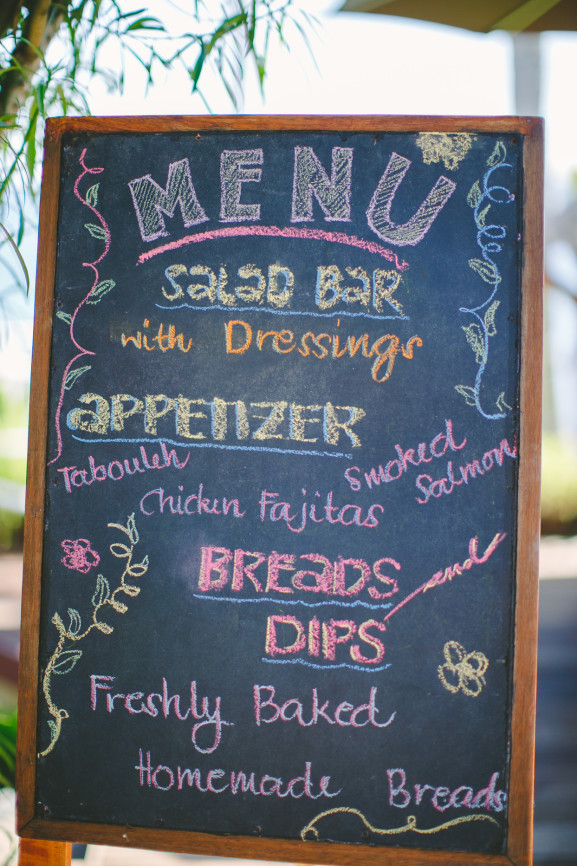 MENU
SALAD BAR
with Dressings
APPETIZER
Taboulah Smoked Salmon
Chicken Fajitas
BREADS and
DIPS
Freshly Baked
Homemade Breads